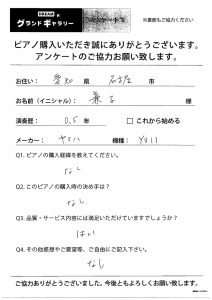 グランドギャラリー アンケート ※裏面もご協力ください
ピアノ購入いただき誠にありがとうございます。
アンケートのご協力お願い致します。
お住い: 愛知 県 名古屋 市
お名前(イニシャル): 様
演奏歴: 0.5 年 □ これから始める
メーカー: ヤマハ 機種: YU11
Q1. ピアノの購入経緯を教えてください。
なし
Q2. このピアノの購入時の決め手は?
なし
Q3. 品質・サービス内容には満足いただけていますでしょうか?
はい
Q4. その他感想やご要望等、ご自由にご記入下さい。
なし
ご協力ありがとうございました。今後ともよろしくお願い致します。